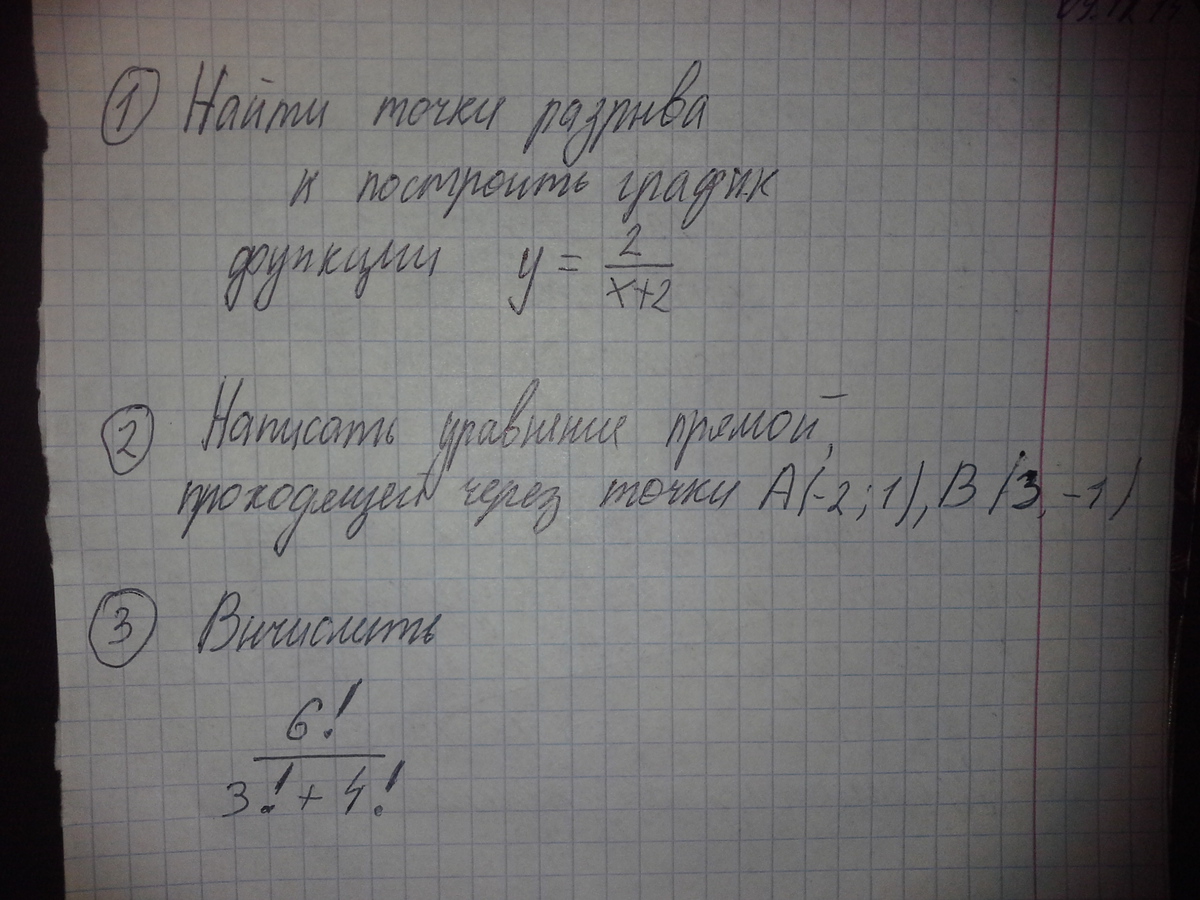 ① Найти точки разрыва
и построить график
функции y = 2/(x+2)
② Написать уравнение прямой,
проходящей через точки A(-2; 1), B(3, -1)
③ Вычислить
6!/(3! + 4!)